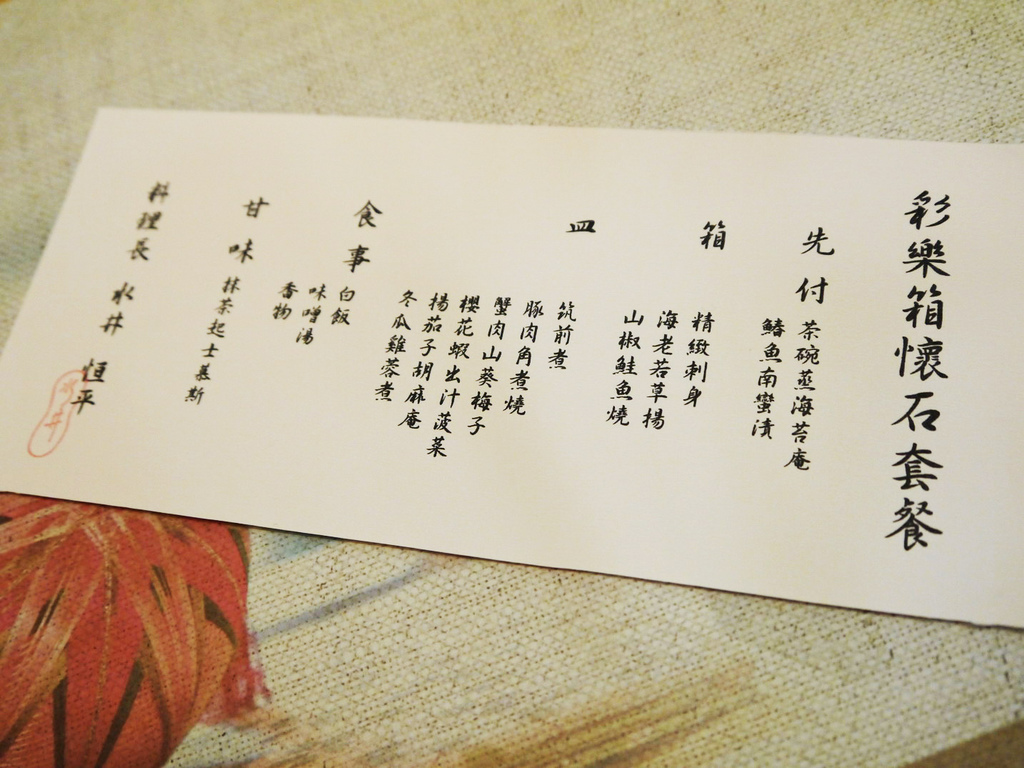 彩樂箱懷石套餐
先付
茶碗蒸海苔庵
鰆魚南蠻漬
箱
精緻刺身
海老若草揚
山椒鮭魚燒
皿
筑前煮
豚肉角煮燒
蟹肉山葵梅子
櫻花蝦出汁菠菜
揚茄子胡麻庵
冬瓜雞蓉煮
食事
白飯
味噌湯
香物
甘味
抹茶起士慕斯
料理長 水井 恒平
水井